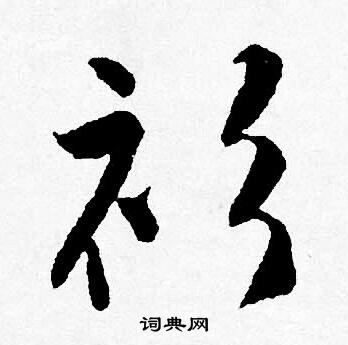 衫
词典网